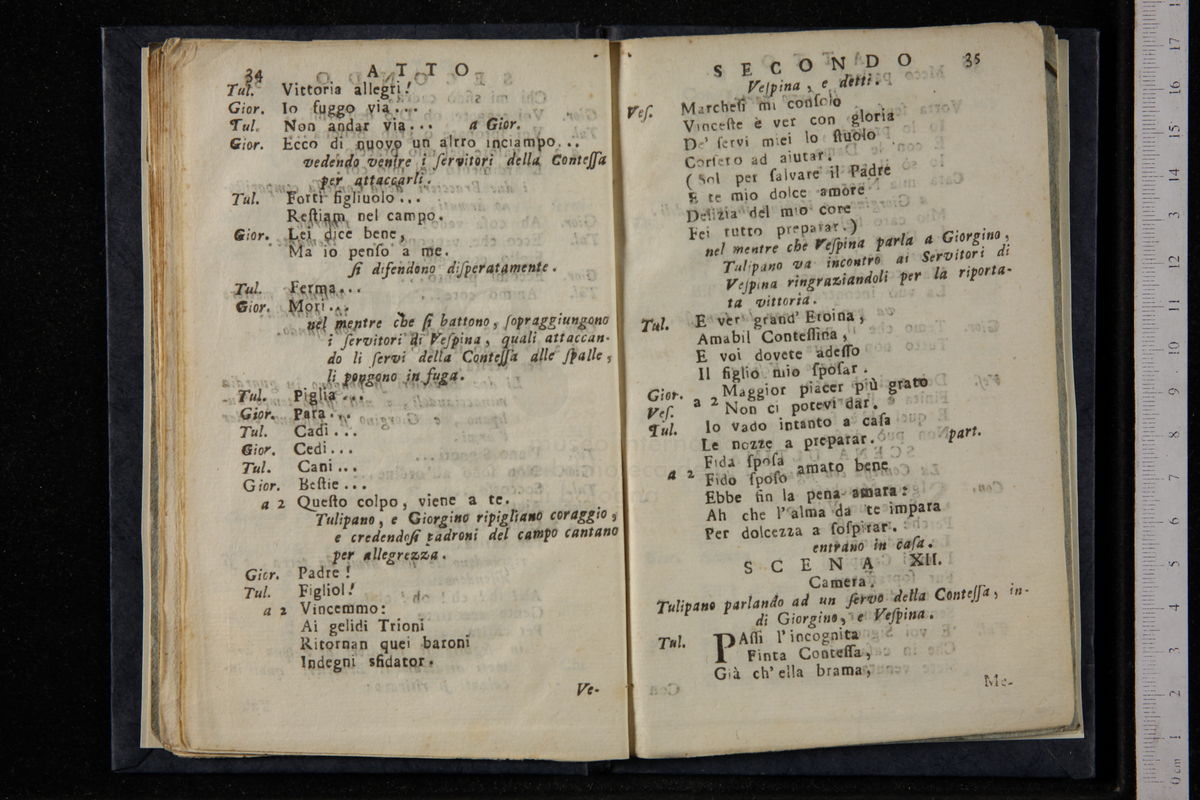 34 ATTO
Tul. Vittoria allegri!
Gior. Io fuggo via...
Tul. Non andar via... a Gior.
Gior. Ecco di nuovo un altro inciampo...
vedendo venire i ſervitori della Conteſſa
per attaccarli.
Tul. Forti figliuolo...
Reſtiam nel campo.
Gior. Lei dice bene,
Ma io penſo a me.
ſi difendono diſperatamente.
Tul. Ferma...
Gior. Mori...
nel mentre che ſi battono, ſopraggiungono
i ſervitori di Veſpina, quali attaccan-
do li ſervi della Conteſſa alle ſpalle,
li pongono in fuga.
Tul. Piglia...
Gior. Para...
Tul. Cadi...
Gior. Cedi...
Tul. Cani...
Gior. Beſtie...
a 2 Queſto colpo, viene a te.
Tulipano, e Giorgino ripigliano coraggio,
e credendoſi padroni del campo cantano
per allegrezza.
Gior. Padre!
Tul. Figliol!
a 2 Vincemmo:
Ai gelidi Trioni
Ritornan quei baroni
Indegni sfidator.
Ve-
SECONDO 35
Veſpina, e detti.
Veſ. Marcheſi mi conſolo
Vinceſte è ver con gloria
De' ſervi miei lo ſtuolo
Corſero ad aiutar.
(Sol per ſalvare il Padre
E te mio dolce amore
Delizia del mio core
Fei tutto preparar.)
nel mentre che Veſpina parla a Giorgino,
Tulipano va incontro ai Servitori di
Veſpina ringraziandoli per la riporta-
ta vittoria.
Tul. E ver grand' Eroina,
Amabil Conteſſina,
E voi dovete adeſſo
Il figlio mio ſpoſar.
Gior. a 2 Maggior piacer più grato
Veſ. Non ci potevi dar.
Tul. Io vado intanto a caſa
Le nozze a preparar. part.
a 2 Fida ſpoſa amato bene
Fido ſpoſo
Ebbe fin la pena amara:
Ah che l'alma da te impara
Per dolcezza a ſoſpirar.
entrano in caſa.
SCENA XII.
Camera.
Tulipano parlando ad un ſervo della Conteſſa, in-
di Giorgino, e Veſpina.
Tul. PAſſi l'incognita
Finta Conteſſa,
Già ch'ella brama,
Me-